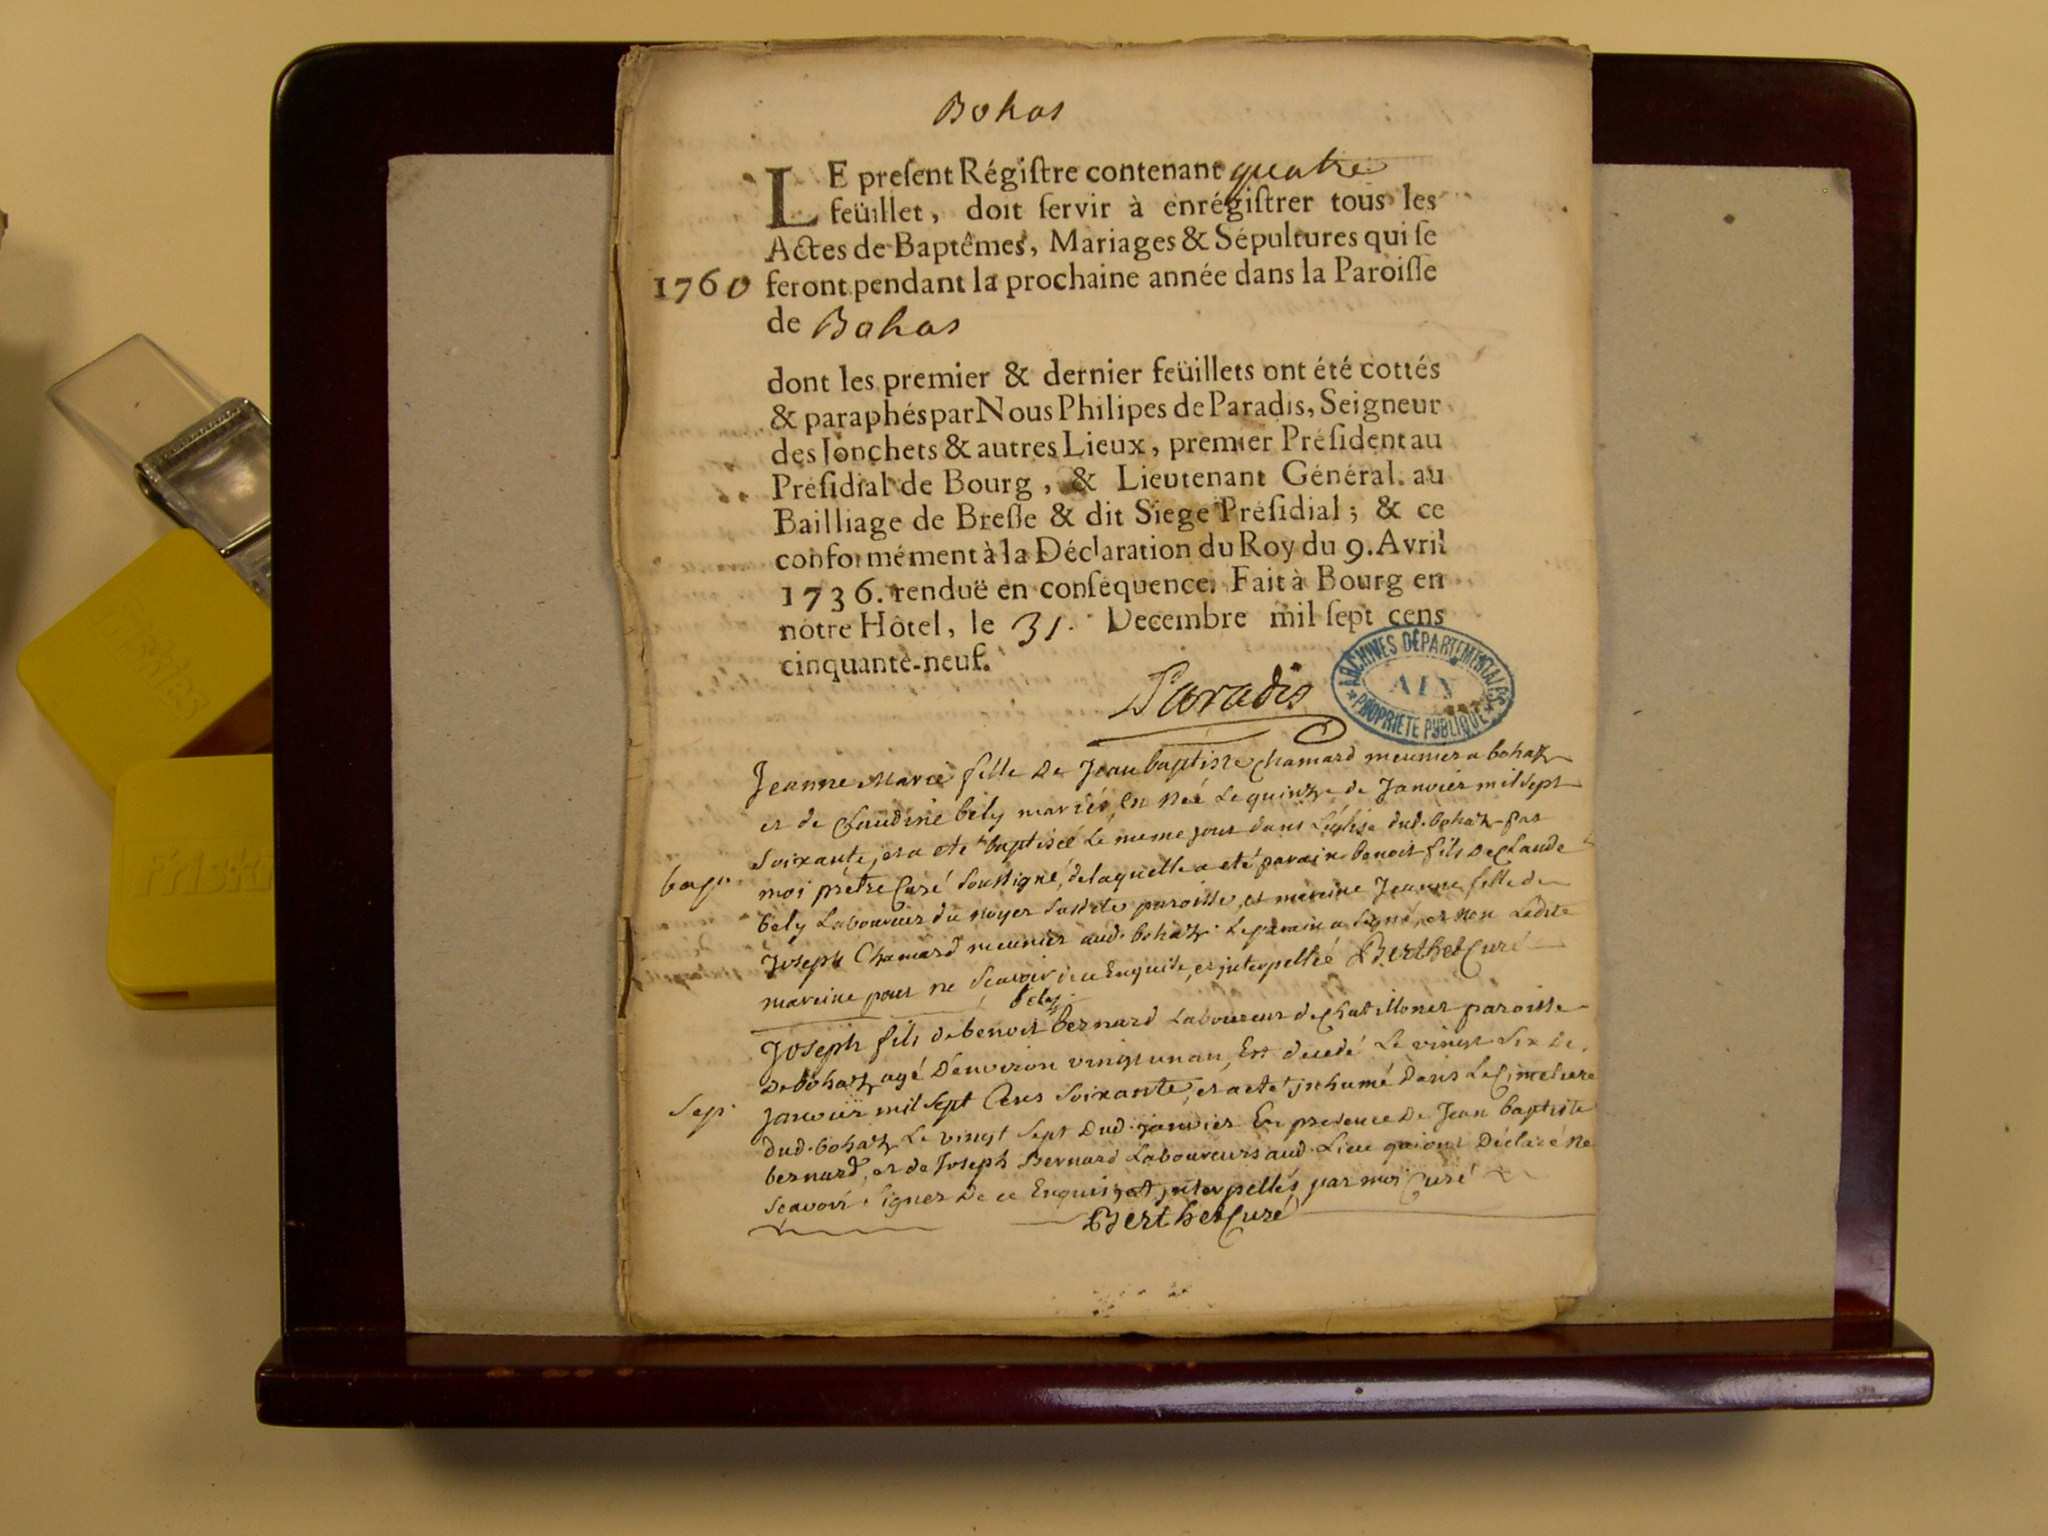 Bohas
LE preſent Régiſtre contenant quatre
feüillet, doit ſervir à enrégiſtrer tous les
Actes de Baptêmes, Mariages & Sépultures qui ſe
1760 feront pendant la prochaine année dans la Paroiſſe
de Bohas
dont les premier & dernier feüillets ont été cottés
& paraphés par Nous Philipes de Paradis, Seigneur
des Jonchets & autres Lieux, premier Préſident au
Préſidial de Bourg, & Lieutenant Général au
Bailliage de Breſſe & dit Siege Préſidial; & ce
conformément à la Déclaration du Roy du 9. Avril
1736. renduë en conſéquence. Fait à Bourg en
nôtre Hôtel, le 31. Decembre mil ſept cens
cinquante-neuf.
Paradis
ARCHIVES DÉPARTEMENTALES
AIN
PROPRIETE PUBLIQUE
Jeanne Marie fille De Jean baptiste Chamard meunier a bohaz
et de Claudine bely mariés, En Neé Le quinze de Janvier mil sept
Soixante, et a eté baptiseé Le meme jour dans L'eglise dud. bohaz par
bap. moi prêtre Curé Soussigné, de laquelle a eté parain benoit fils De Claude
bely Laboureur du noyer Susdite paroisse, et mareine Jeanne fille de
Joseph Chamard meunier aud. bohaz. Le parain a Signé, et Non Ladite
mareine pour ne Scavoir de ce Enquise, et interpelleé Berthet Curé
bely
Joseph fils de benoit bernard Laboureur de Chatillonet paroisse
De bohaz agé D'environ vingt un an, Est decedé Le vingt Six de
Sep. Janvier mil Sept Cens Soixante, et a eté inhumé Dans Le Cimetiere
dud. bohaz Le vingt Sept Dud. janvier En presence De Jean baptiste
bernard, et de Joseph Bernard Laboureurs aud. Lieu qui ont Déclaré Ne
Sçavoir Signer De ce Enquis, et interpellés par moi Curé
Berthet Curé
Friskies
Friski